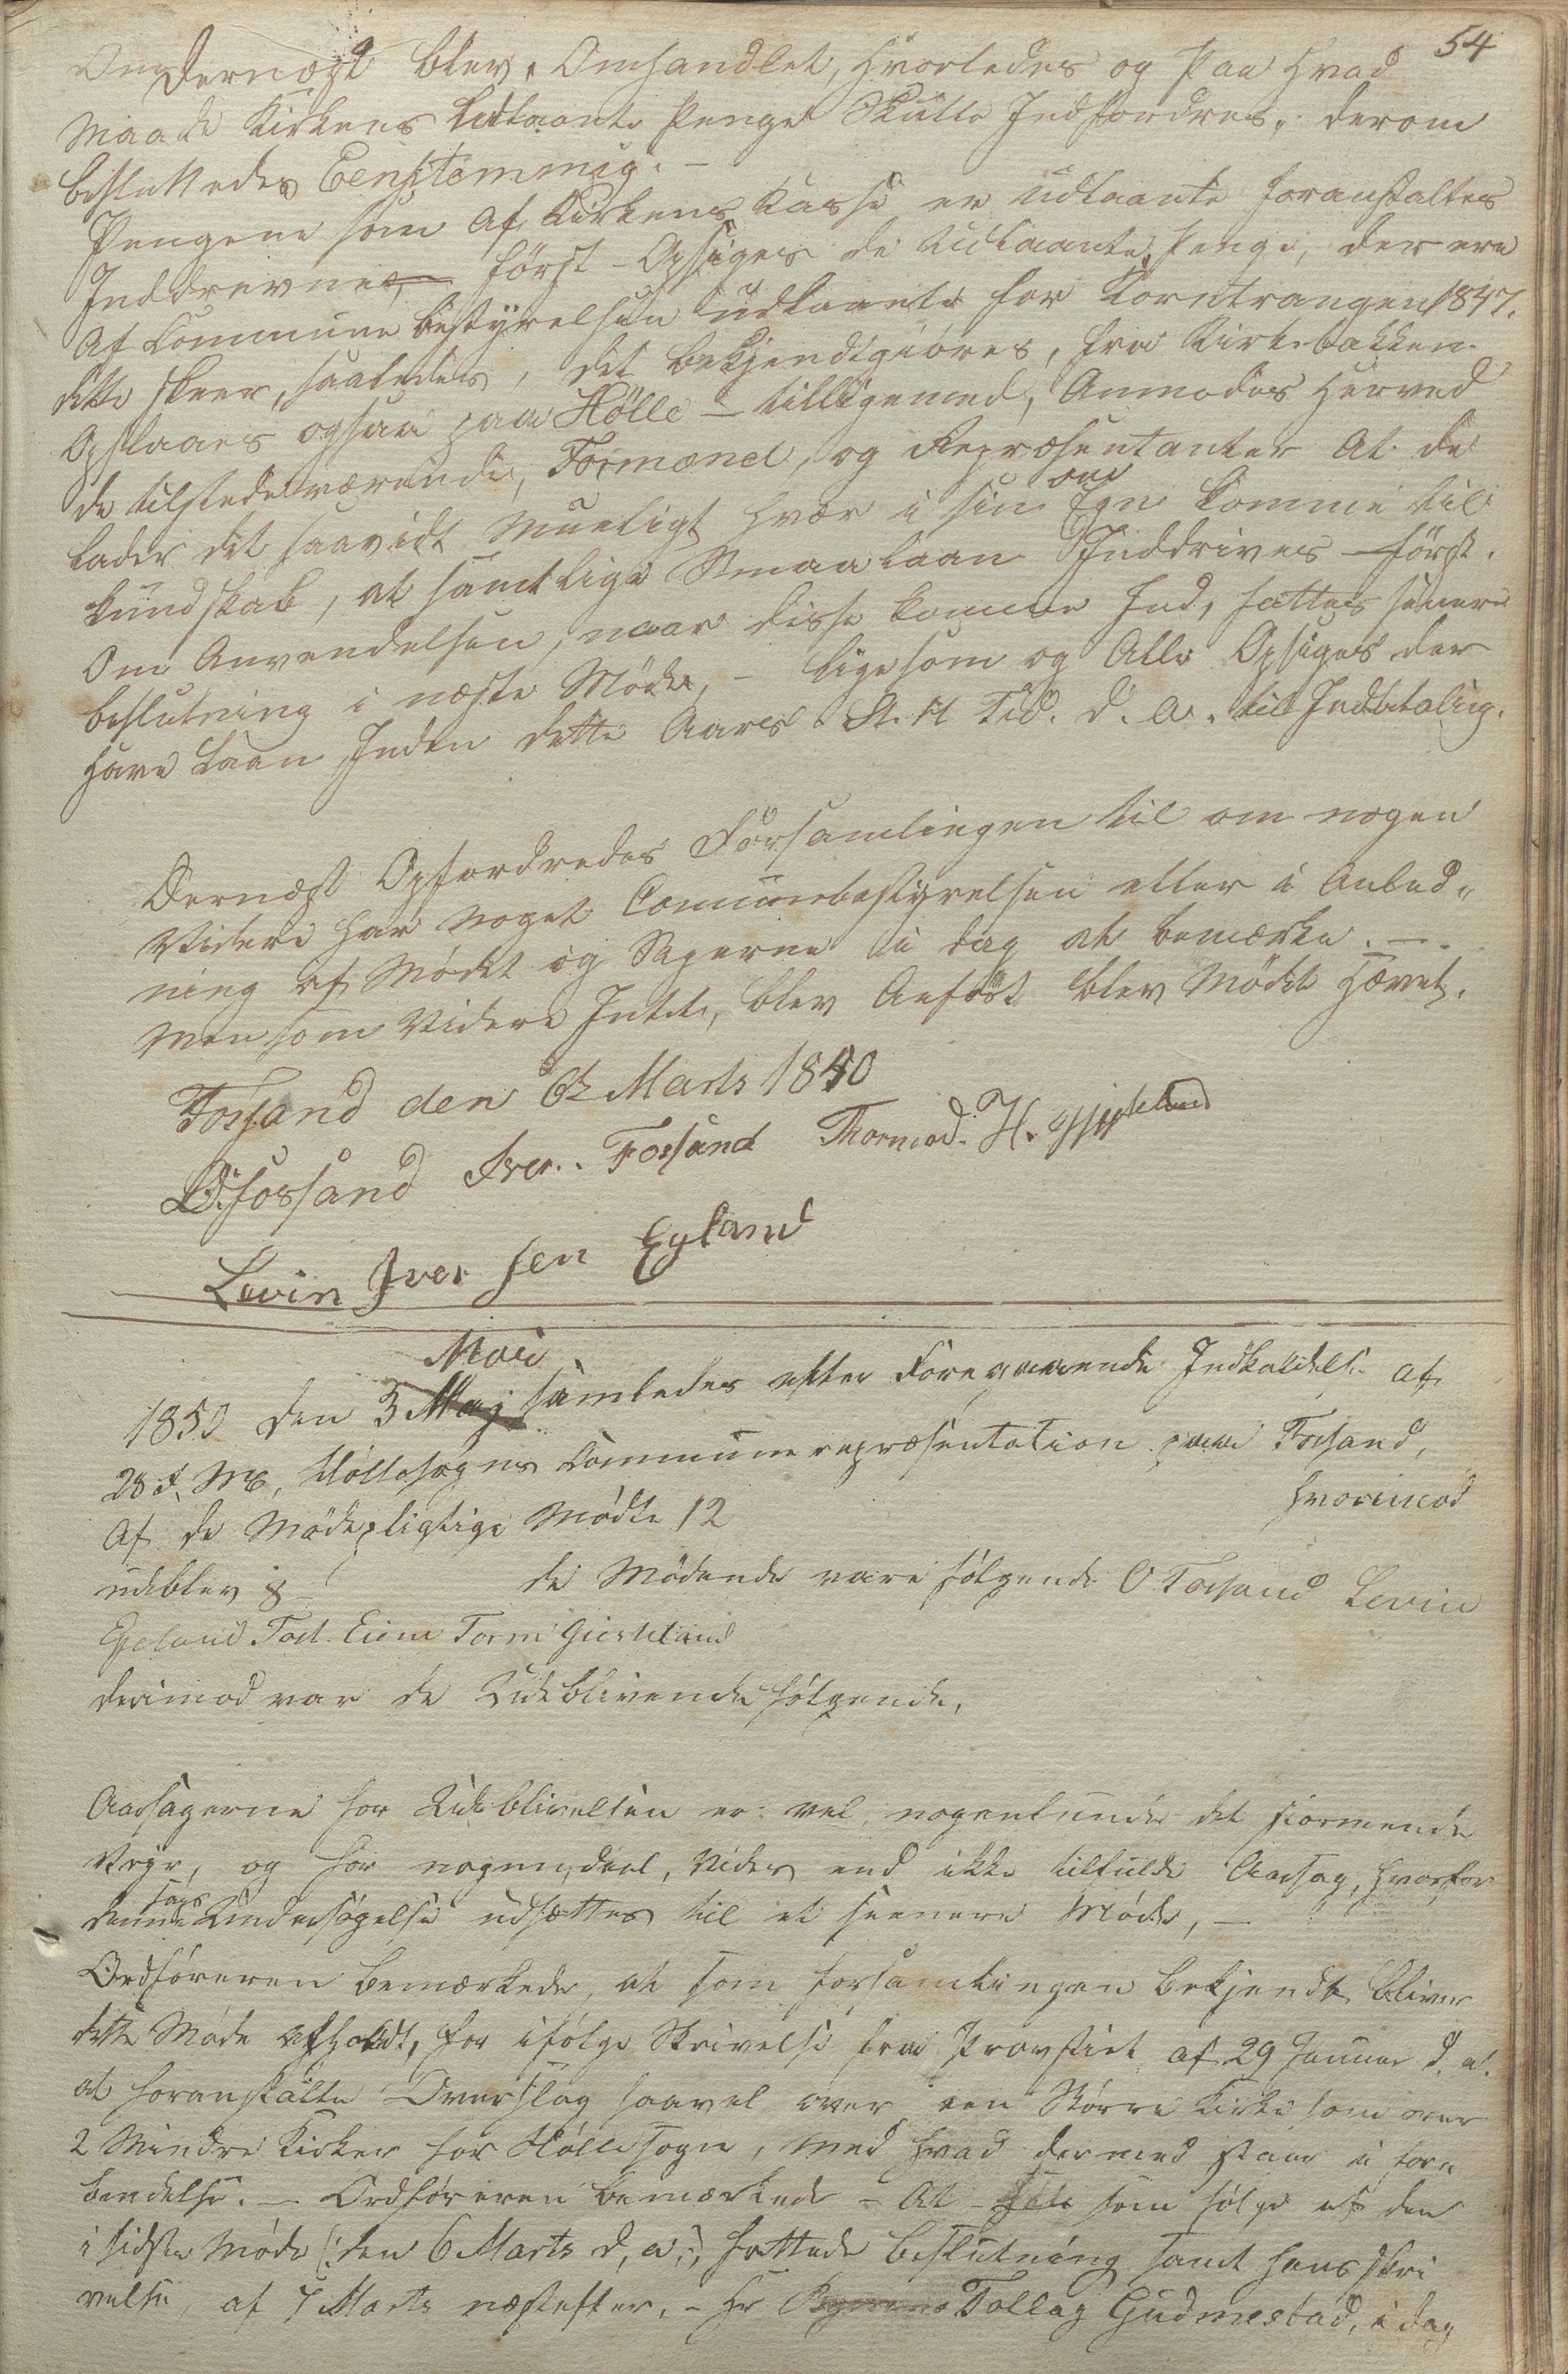 54
Dernæst blev Omhandlet, Hvorledes og Paa Hvad
Maade Kirkens Udlaante Penge Skulle Indfordres, derom
besluttedes Eenstemmig. –
Pengene som Af Kirkens Kasse er udlaante foranstaltes
Inddrevne, først – Opsiges de Udlaante Penge, der ere
Af Commune bestyrelsen udlaante for Korntrangen 1847.
dette skeer, saaledes, det bekjendtgiøres, fra Kirkebakken
Opslaaes ogsaa paa Hölle – tilligemed, Anmodes Herved
de tilstedeværende, Formænd, og Repræsentanter At de
lader det saavidt Mueligt hver i sin Egn komme til
kundskab, at samtlige Smaalaan Inddrives – først.
Om Anvendelsen, naar disse komme Ind, fattes senere
beslutning i næste Möde, – ligesom og Alle Opsiges der
have Laan Inden dette Aars St. H Tid. d. A. til Indbetaling.
Dernæst Opfordredes Forsamlingen til om nogen
Videre har noget Communebestyrelsen eller i Anled„
ning af Mödet og Sagerne i dag at bemærke. –
Men som Videre Intet, blev Anført blev Mödet Hævet.
Fossand den 6te Marts 1850
O Fossand Iver. Fossand Thormod. H. Gjeskeland
Levin Iver sen Egland
Mai
1850 den 3 Maj samledes efter Foregaaende Indkaldelse af
28 f. M., Höllesogns Communerepræsentation paa Fossand,
Af de Mödepligtige Mödte 12 hvorimod
udeblev 8 – de Mödende vare følgende O Fossand Levin
Egeland Torm Gieskeland
derimod var de Udeblivende følgende,
Aarsagerne for Udeblivelsen er vel nogenlunde det
Veyr, og for nogendeel, vides end ikke tilfulde Aarsag, hvorfor
denne Sags Undersögelse udsættes til et seenere Möde, –
Ordføreren bemærkede, at som forsamlingen bekjendt bliver
dette Möde afholdt, for ifølge Skrivelse fra Provstiet af 29 Januar d. a.
at foranstalte Overslag saavel over een Større Kirke som over
2 Mindre Kirker for Höllesogn, med hvad dermed staar i for„
bindelse. – Ordføreren bemærkede – At som følge af den
i sidste Möde (: den 6 Marts d, a :) fattede beslutning samt hans skri
velse af 7 Marts næstefter, – Hr Tollag Gudmestad, i dag